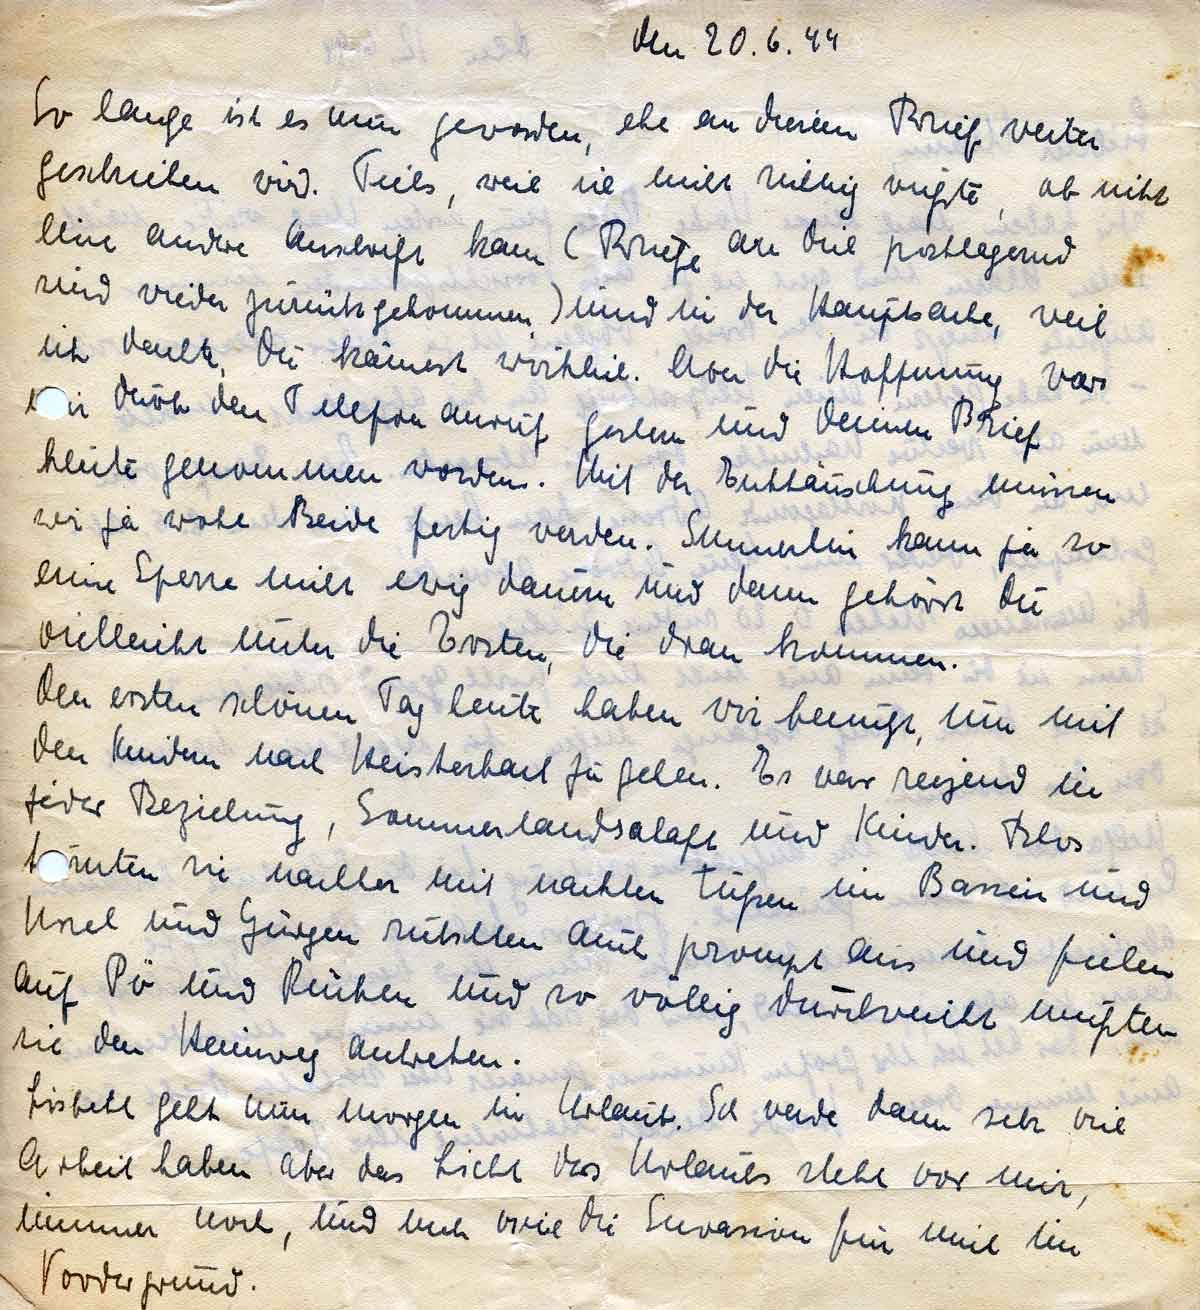 den 20.6.44
So lange ist es nun geworden, ehe an diesem Brief weiter
geschrieben wird. Teils, weil ich nicht richtig wußte, ob nicht
eine andere Anschrift kam (Briefe an Dich postlagernd
sind wieder zurückgekommen,) und in der Hauptsache, weil
ich dachte, Du kämest wirklich. Aber die Hoffnung war
mir durch den Telefonanruf gestern und Deinen Brief
heute genommen worden. Mit der Enttäuschung müssen
wir ja wohl Beide fertig werden. Immerhin kann ja so
eine Sperre nicht ewig dauern und dann gehörst Du
vielleicht unter die Ersten, die dran kommen.
Den ersten schönen Tag heute haben wir benutzt, um mit
den Kindern nach Heisterbach zu gehen. Es war reizend in
jeder Beziehung, Sommerlandschaft und Kinder. Blos
turnten sie nachher mit nackten Füßen im Bassin und
Ursel und Jürgen rutschten auch prompt aus und fielen
auf Pö und Rücken und so völlig durchweicht mußten
sie den Heimweg antreten.
Lisbeth geht nun morgen in Urlaub. Ich werde dann sehr viel
Arbeit haben aber das Licht des Urlaubs steht vor mir,
immer noch, und auch die Invasion für mich im
Vordergrund.